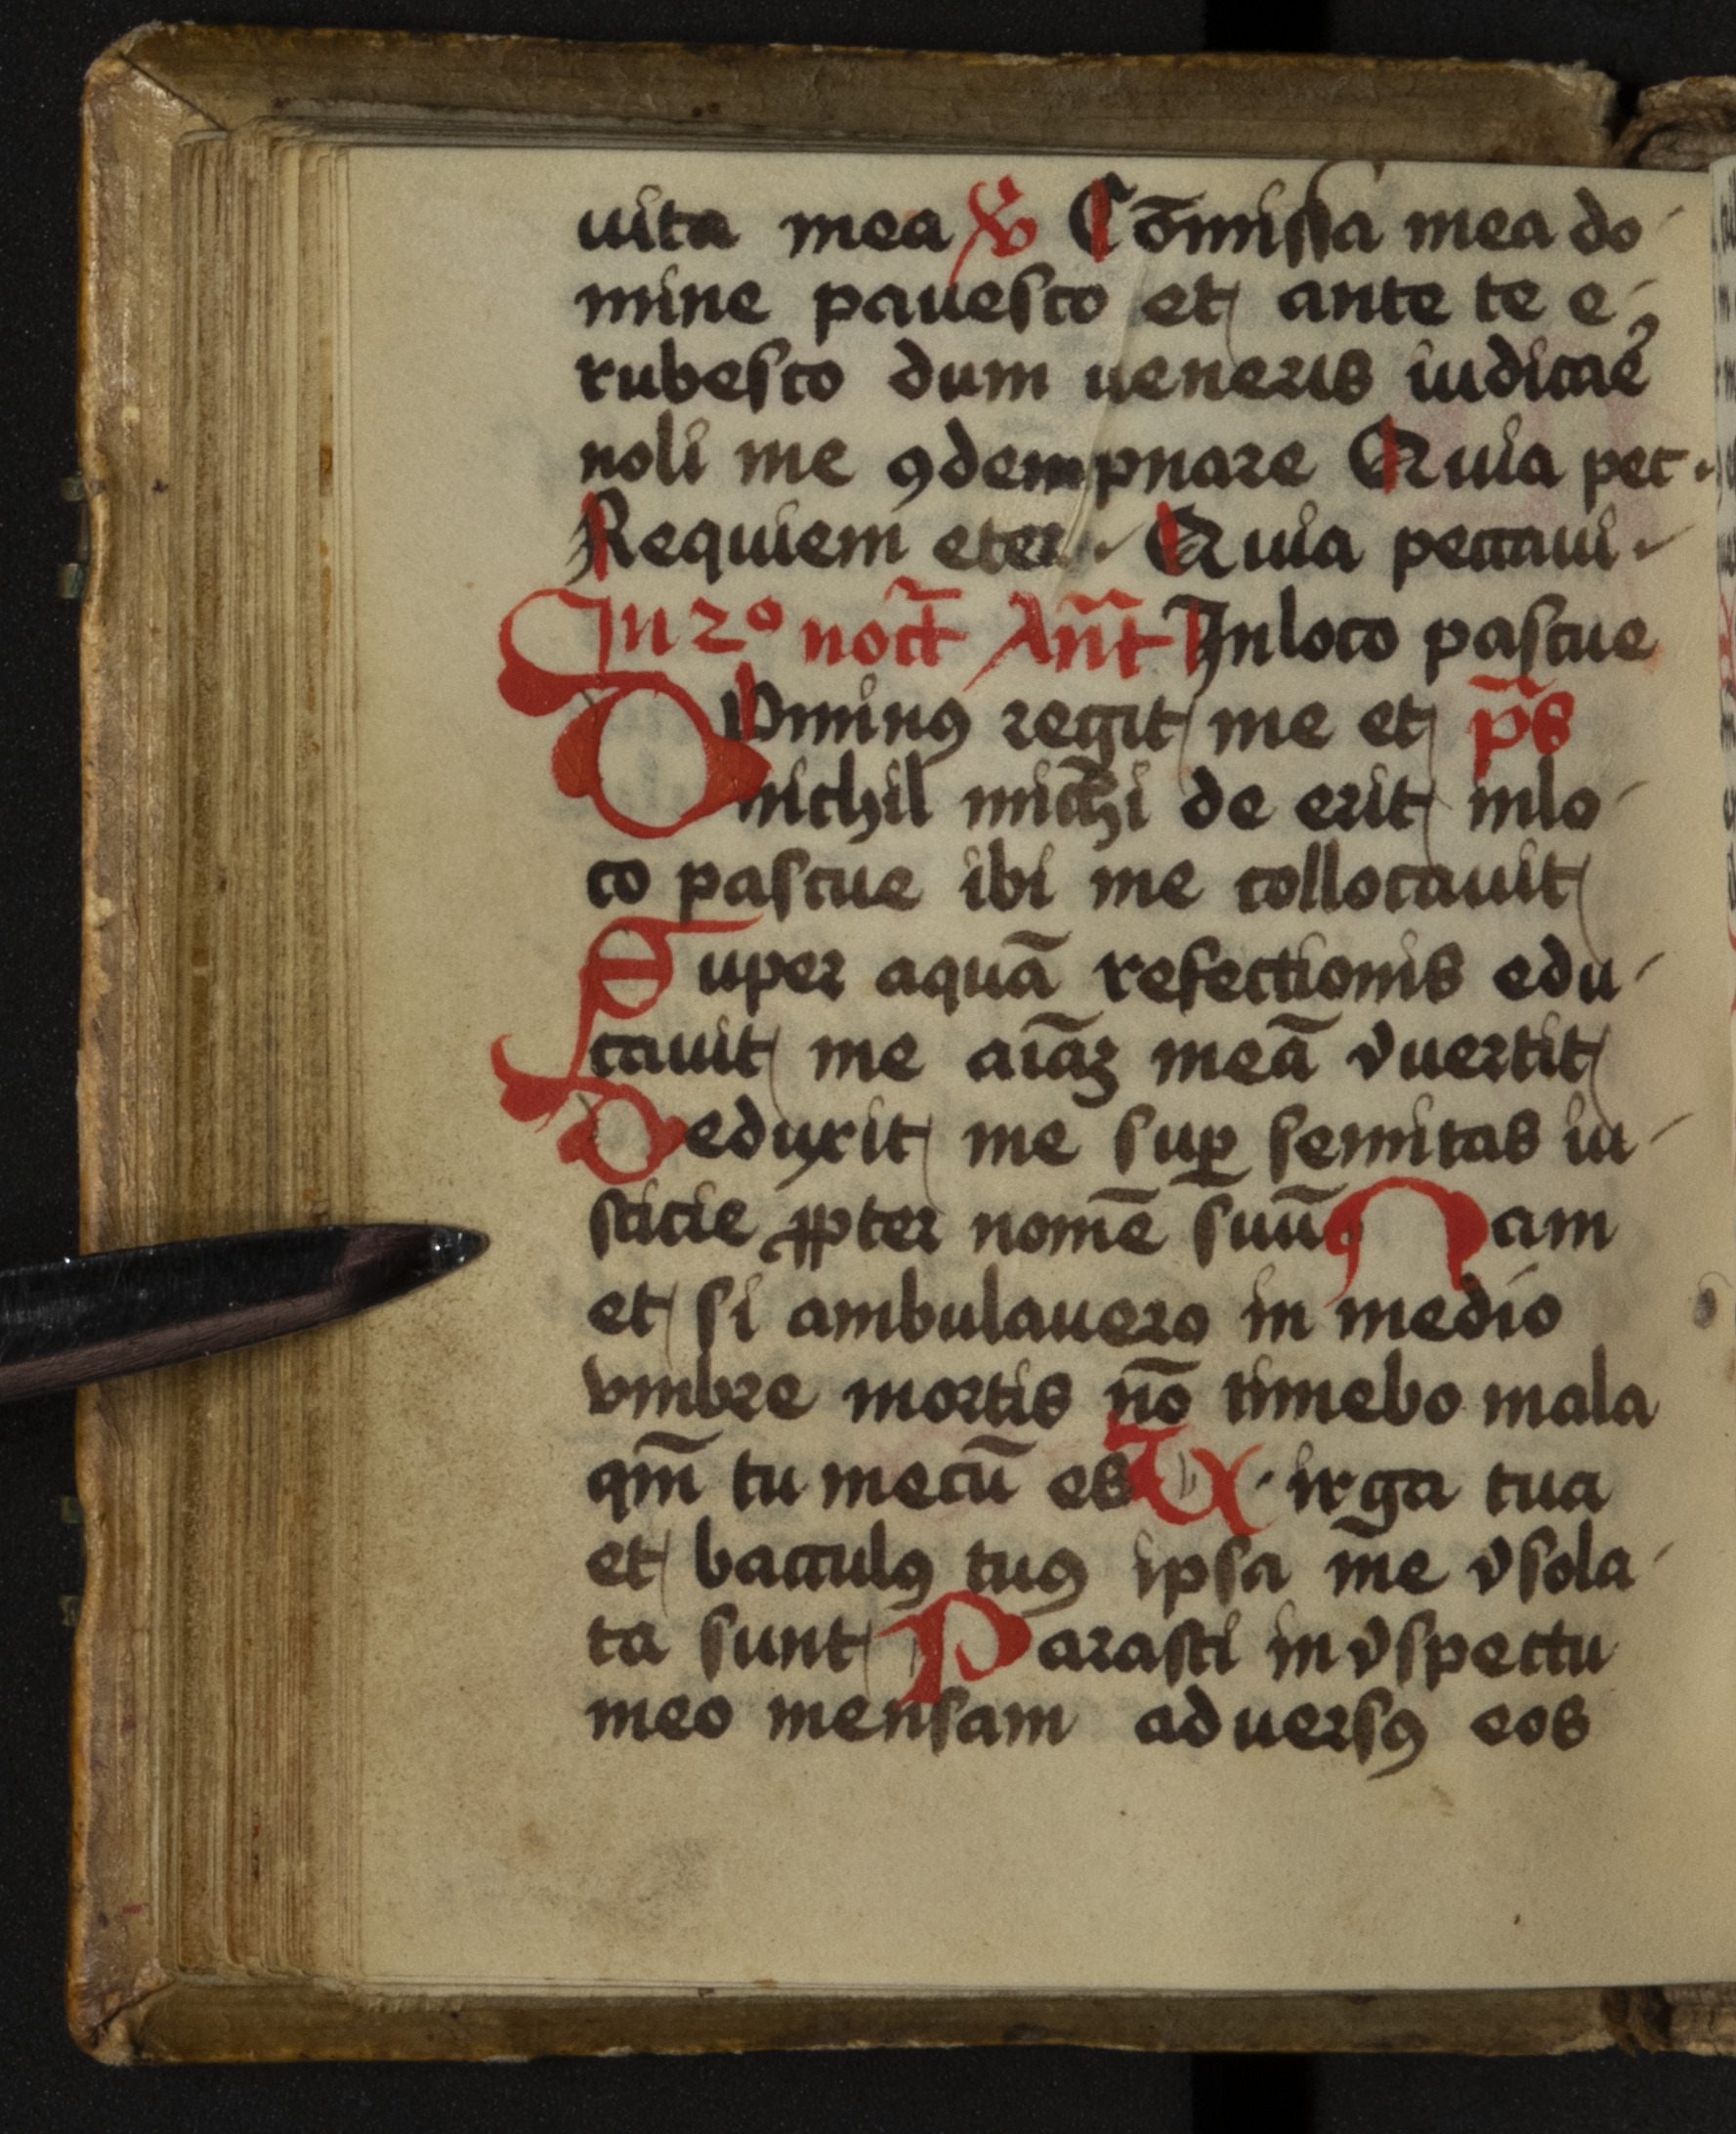 uita mea ℣ Cōmissa mea do
mine pauesco et ante te e
rubesco dum ueneris iudicaɼ̉
noli me ꝯdempnare Quia pec
Requiem eter Quia peccaui
In 2º noct̄ Ant̄ In loco pascue
Dominꝰ regit me et p̄s
nichil michi de erit inlo
co pascue ibi me collocauit
Super aquā refectionis edu
cauit me aīaꝫ meā ꝯuertit
Deduxit me suꝑ semitas iu
sticie ꝓpter nomē suū Nam
et si ambulauero in medio
vmbre mortis nō timebo mala
qm̄ tu mecū es Uirga tua
et bacculꝰ tuꝰ ipsa me ꝯsola
ta sunt Parasti in ꝯspectu
meo mensam aduersꝰ eos